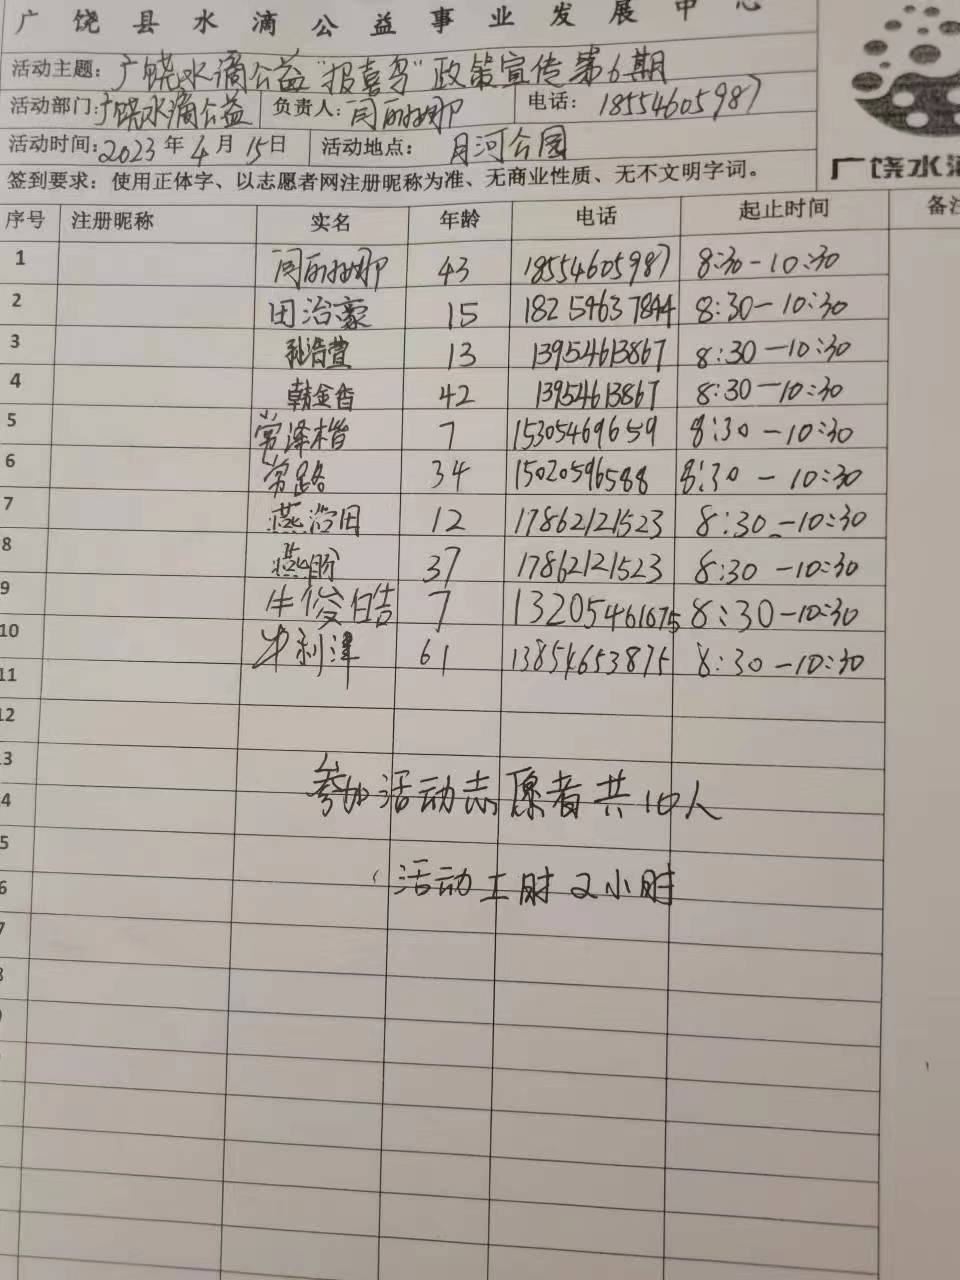 广饶县水滴公益事业发展中心
活动主题：广饶水滴公益“报喜鸟”政策宣传第6期
活动部门：广饶水滴公益 负责人：闫丽娜 电话：18554605987
活动时间：2023年4月15日 活动地点：月河公园
广饶水滴
签到要求：使用正体字、以志愿者网注册昵称为准、无商业性质、无不文明字词。
序号 注册昵称 实名 年龄 电话 起止时间 备注
1 闫丽娜 43 18554605987 8:30-10:30
2 田治豪 15 18259637844 8:30-10:30
3 孙浩萱 13 13954613867 8:30-10:30
4 韩金香 42 13954613867 8:30-10:30
5 常泽楷 7 15305469659 8:30-10:30
6 常路 34 15020596588 8:30-10:30
7 燕浩田 12 17862121523 8:30-10:30
8 燕盼 37 17862121523 8:30-10:30
9 牛俊皓 7 13205461675 8:30-10:30
10 牛利津 61 13854653875 8:30-10:30
11
12
3
参加活动志愿者共10人
4
5
活动工时2小时
6
7